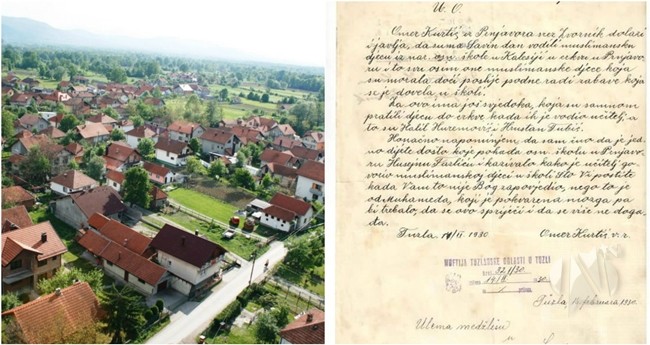 U. O.
Omer Kurtić iz Prnjavora srez Zvornik dolazi
i javlja, da su na Savin dan vodili muslimansku
djecu iz nar. osn. škole u Kalesiji u crkvu u Prnjavo-
ru i to sve osim one muslimanske djece koja
su morala doći poslije podne radi zabave koja
se je dovela u školi.
Za ovo ima još svjedoka, koja su samnom
pratili djecu do crkve kada ih je vodio učitelj a
to su Halil Kuremović i Hrustan Fubić.
Konačno napominjem, da sam čuo da je jed-
no dijete dosta koje pohađa osn. školu u Prnjavo-
ru Husejnu Farliću i kazivalo kako je učitelj go-
vorio muslimanskoj djeci u školi: Što Vi postite
kada Vam to nije Bog zapovjedio, nego to je
od Muhameda, koji je pokvarena mozga pa
bi trebalo, da se ovo spriječi i da se više ne doga-
đa.
Tuzla 14/II. 1930 Omer Kurtić v. r.
MUFTIJA TUZLANSKE OBLASTI U TUZLI
Broj 22/1/30
prilog.
Tuzla februara 1930.
Ulema medžlisu
u